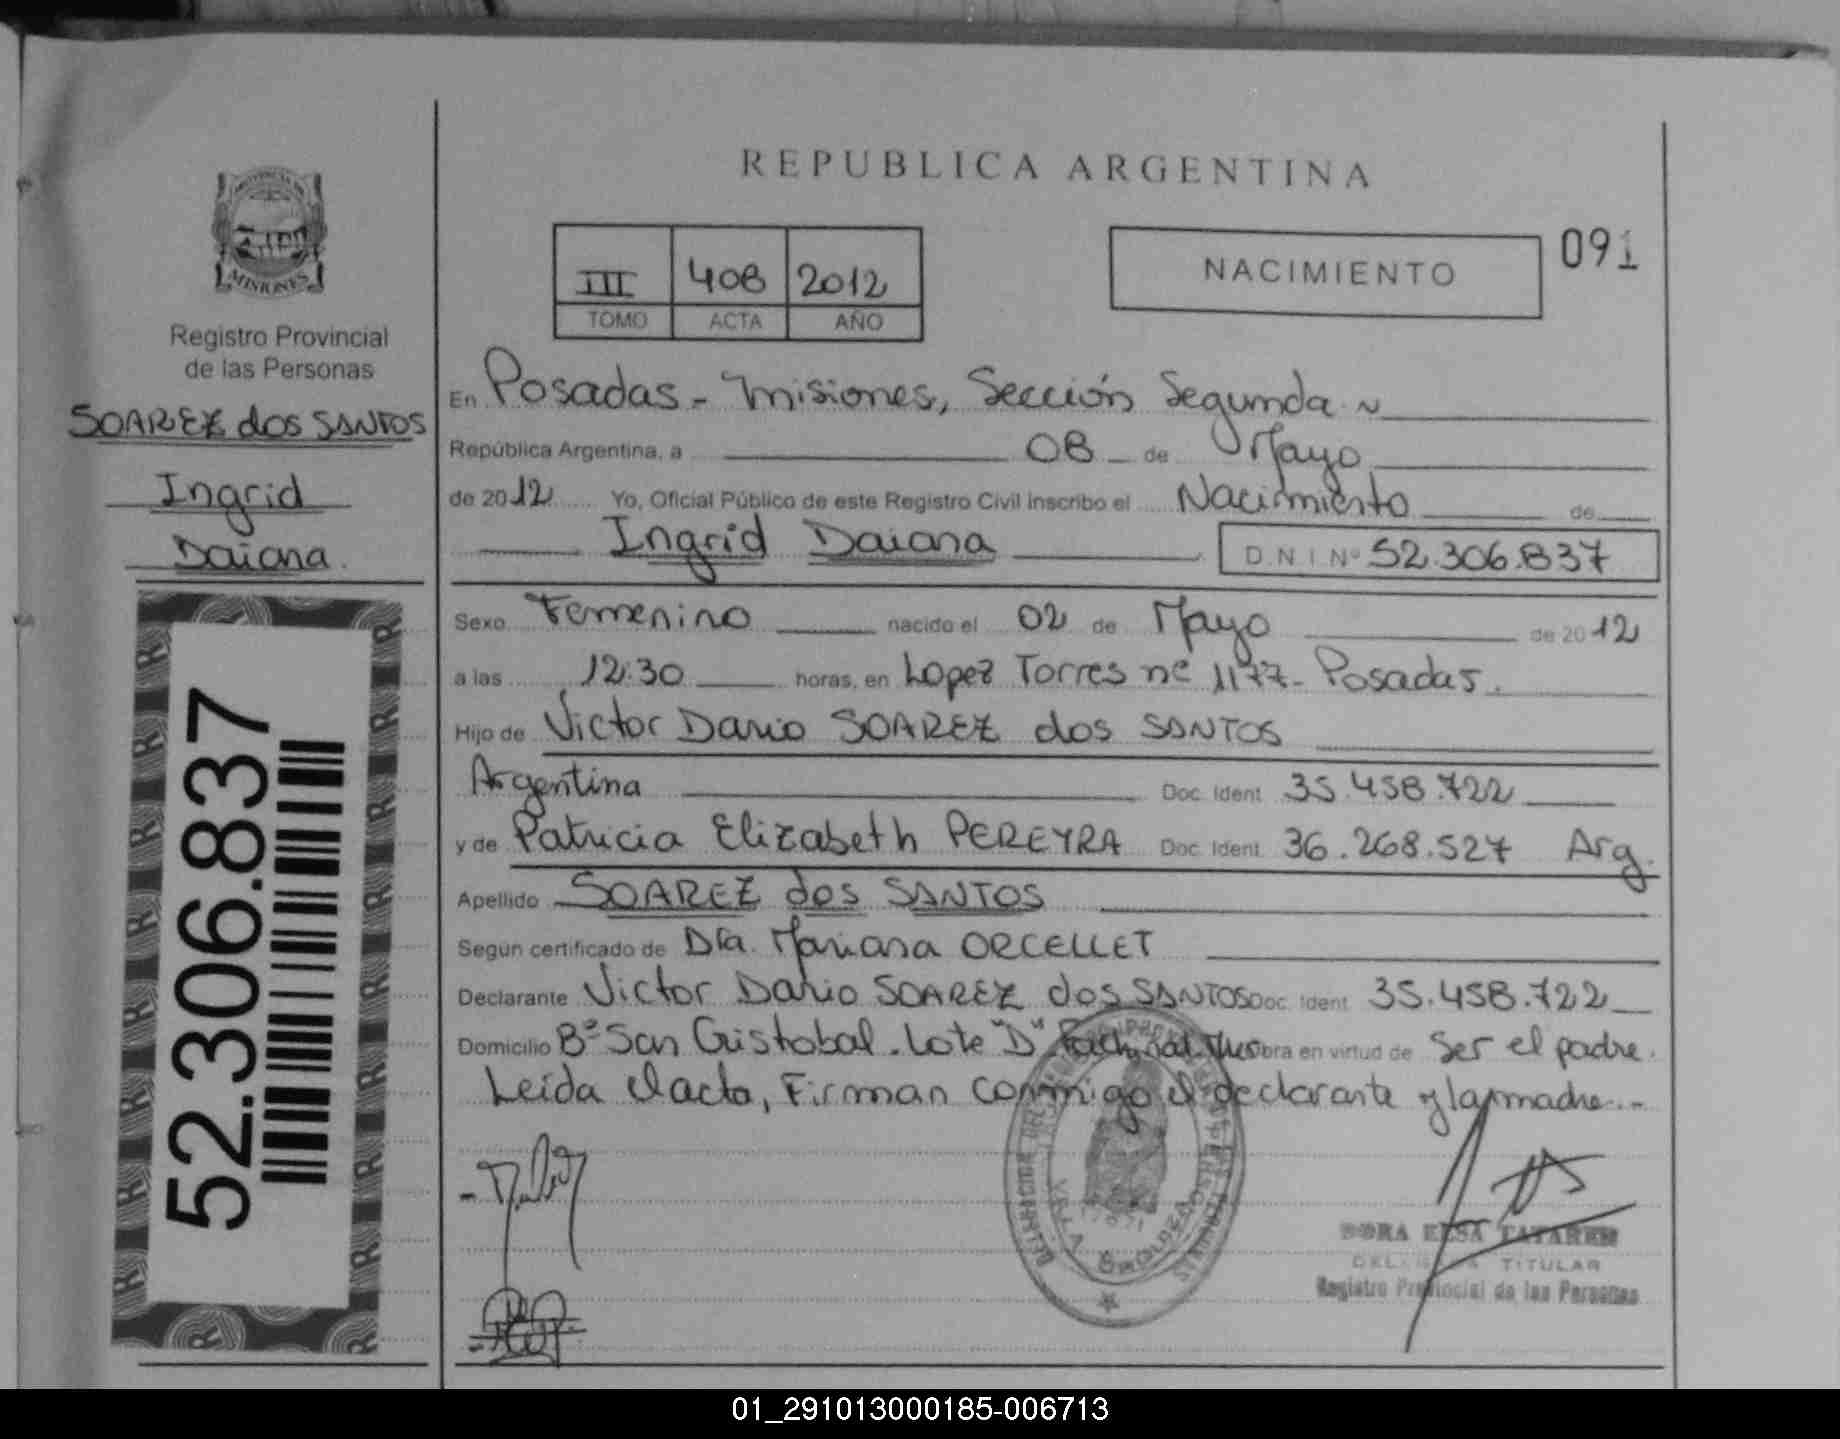 REPUBLICA ARGENTINA
III 408 2012
TOMO ACTA AÑO
NACIMIENTO
091
MISIONES
Registro Provincial
de las Personas
SOAREZ dos SANTOS
Ingrid
Daiana.
52.306.837
En Posadas - Misiones, Sección Segunda.
República Argentina, a 08 de Mayo
de 2012 Yo, Oficial Público de este Registro Civil inscribo el Nacimiento de
Ingrid Daiana D.N.I Nº 52.306.837
Sexo Femenino nacido el 02 de Mayo de 2012
a las 12:30 horas, en Lopez Torres nº 1177 - Posadas.
Hijo de Victor Dario SOAREZ dos SANTOS
Argentina Doc. Ident 35.458.722
y de Patricia Elizabeth PEREYRA Doc. Ident 36.268.527 Arg.
Apellido SOAREZ dos SANTOS
Según certificado de Dra. Mariana ORCELLET
Declarante Victor Dario SOAREZ dos SANTOS Doc. Ident 35.458.722
Domicilio Bº San Cristobal. Lote "D" Obra en virtud de Ser el padre.
Leída el acta, Firman conmigo el declarante y la madre.-
DORA ELSA
TITULAR
Registro Provincial de las Personas
01_291013000185-006713